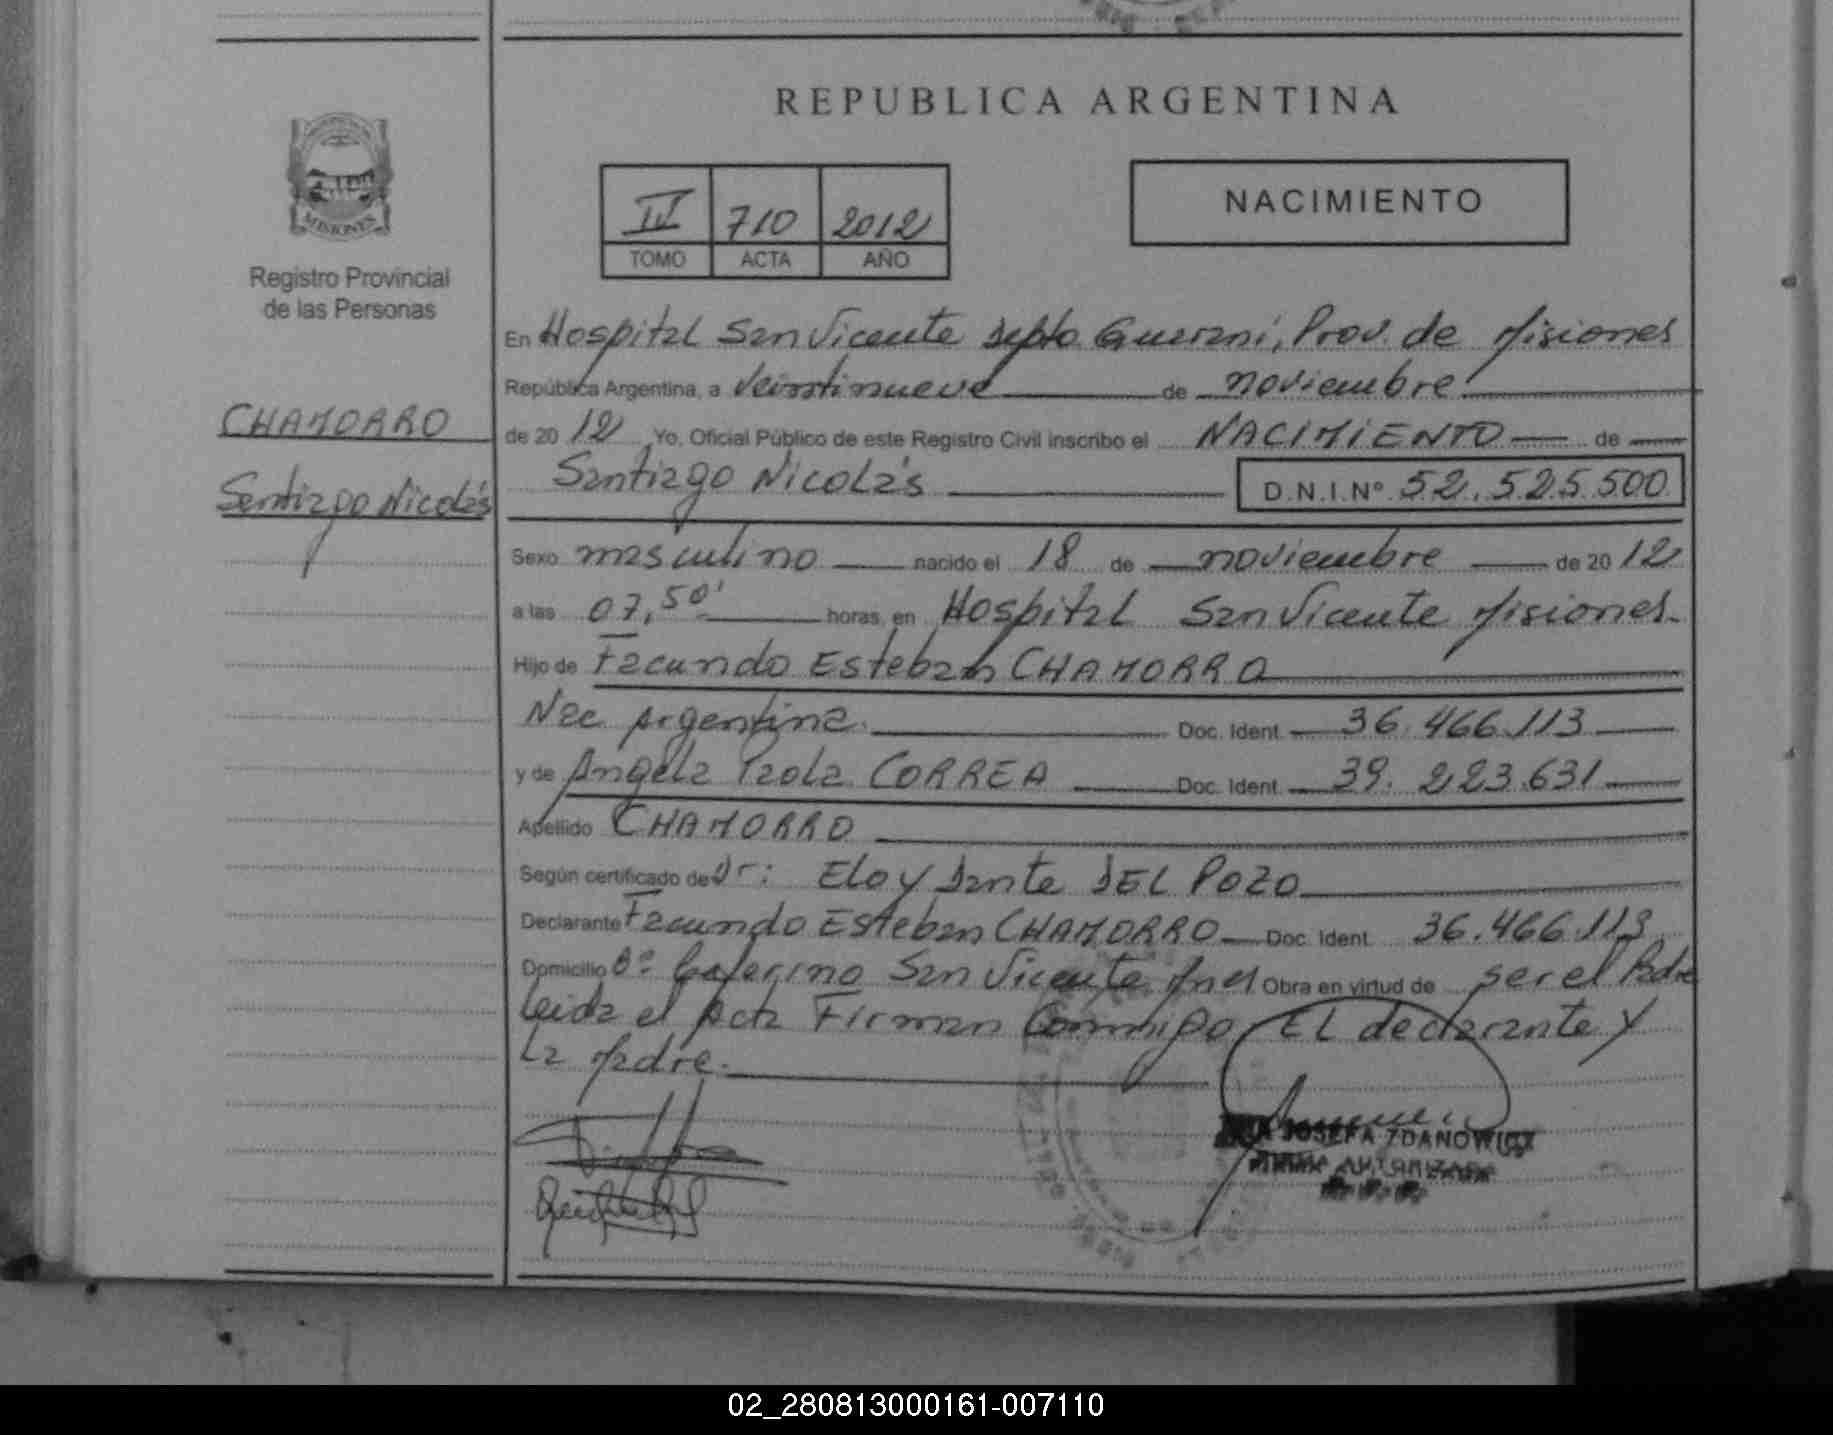 REPUBLICA ARGENTINA
IV 710 2012
TOMO ACTA AÑO
NACIMIENTO
MISIONES
Registro Provincial
de las Personas
CHAMORRO
Santiago Nicolás
En Hospital San Vicente Depto Guarani, Prov. de Misiones
República Argentina, a veintinueve de noviembre
de 2012 Yo, Oficial Público de este Registro Civil inscribo el NACIMIENTO de
Santiago Nicolás D.N.I.Nº 52.525.500
Sexo masculino nacido el 18 de noviembre de 2012
a las 07,50' horas, en Hospital San Vicente Misiones
Hijo de Facundo Esteban CHAMORRO
Nac Argentina. Doc. Ident. 36.466.113
y de Angela Paola CORREA Doc. Ident. 39.223.631
Apellido CHAMORRO
Según certificado de Dr: Eloy Dante DEL POZO
Declarante Facundo Esteban CHAMORRO Doc. Ident. 36.466.113
Domicilio Bº Ceferino San Vicente Mnes Obra en virtud de ser el Padre
Leida el Acta Firman Conmigo EL declarante y
La Madre.
JOSEFA ZDANOWICZ
FIRMA AUTORIZADA
02_280813000161-007110